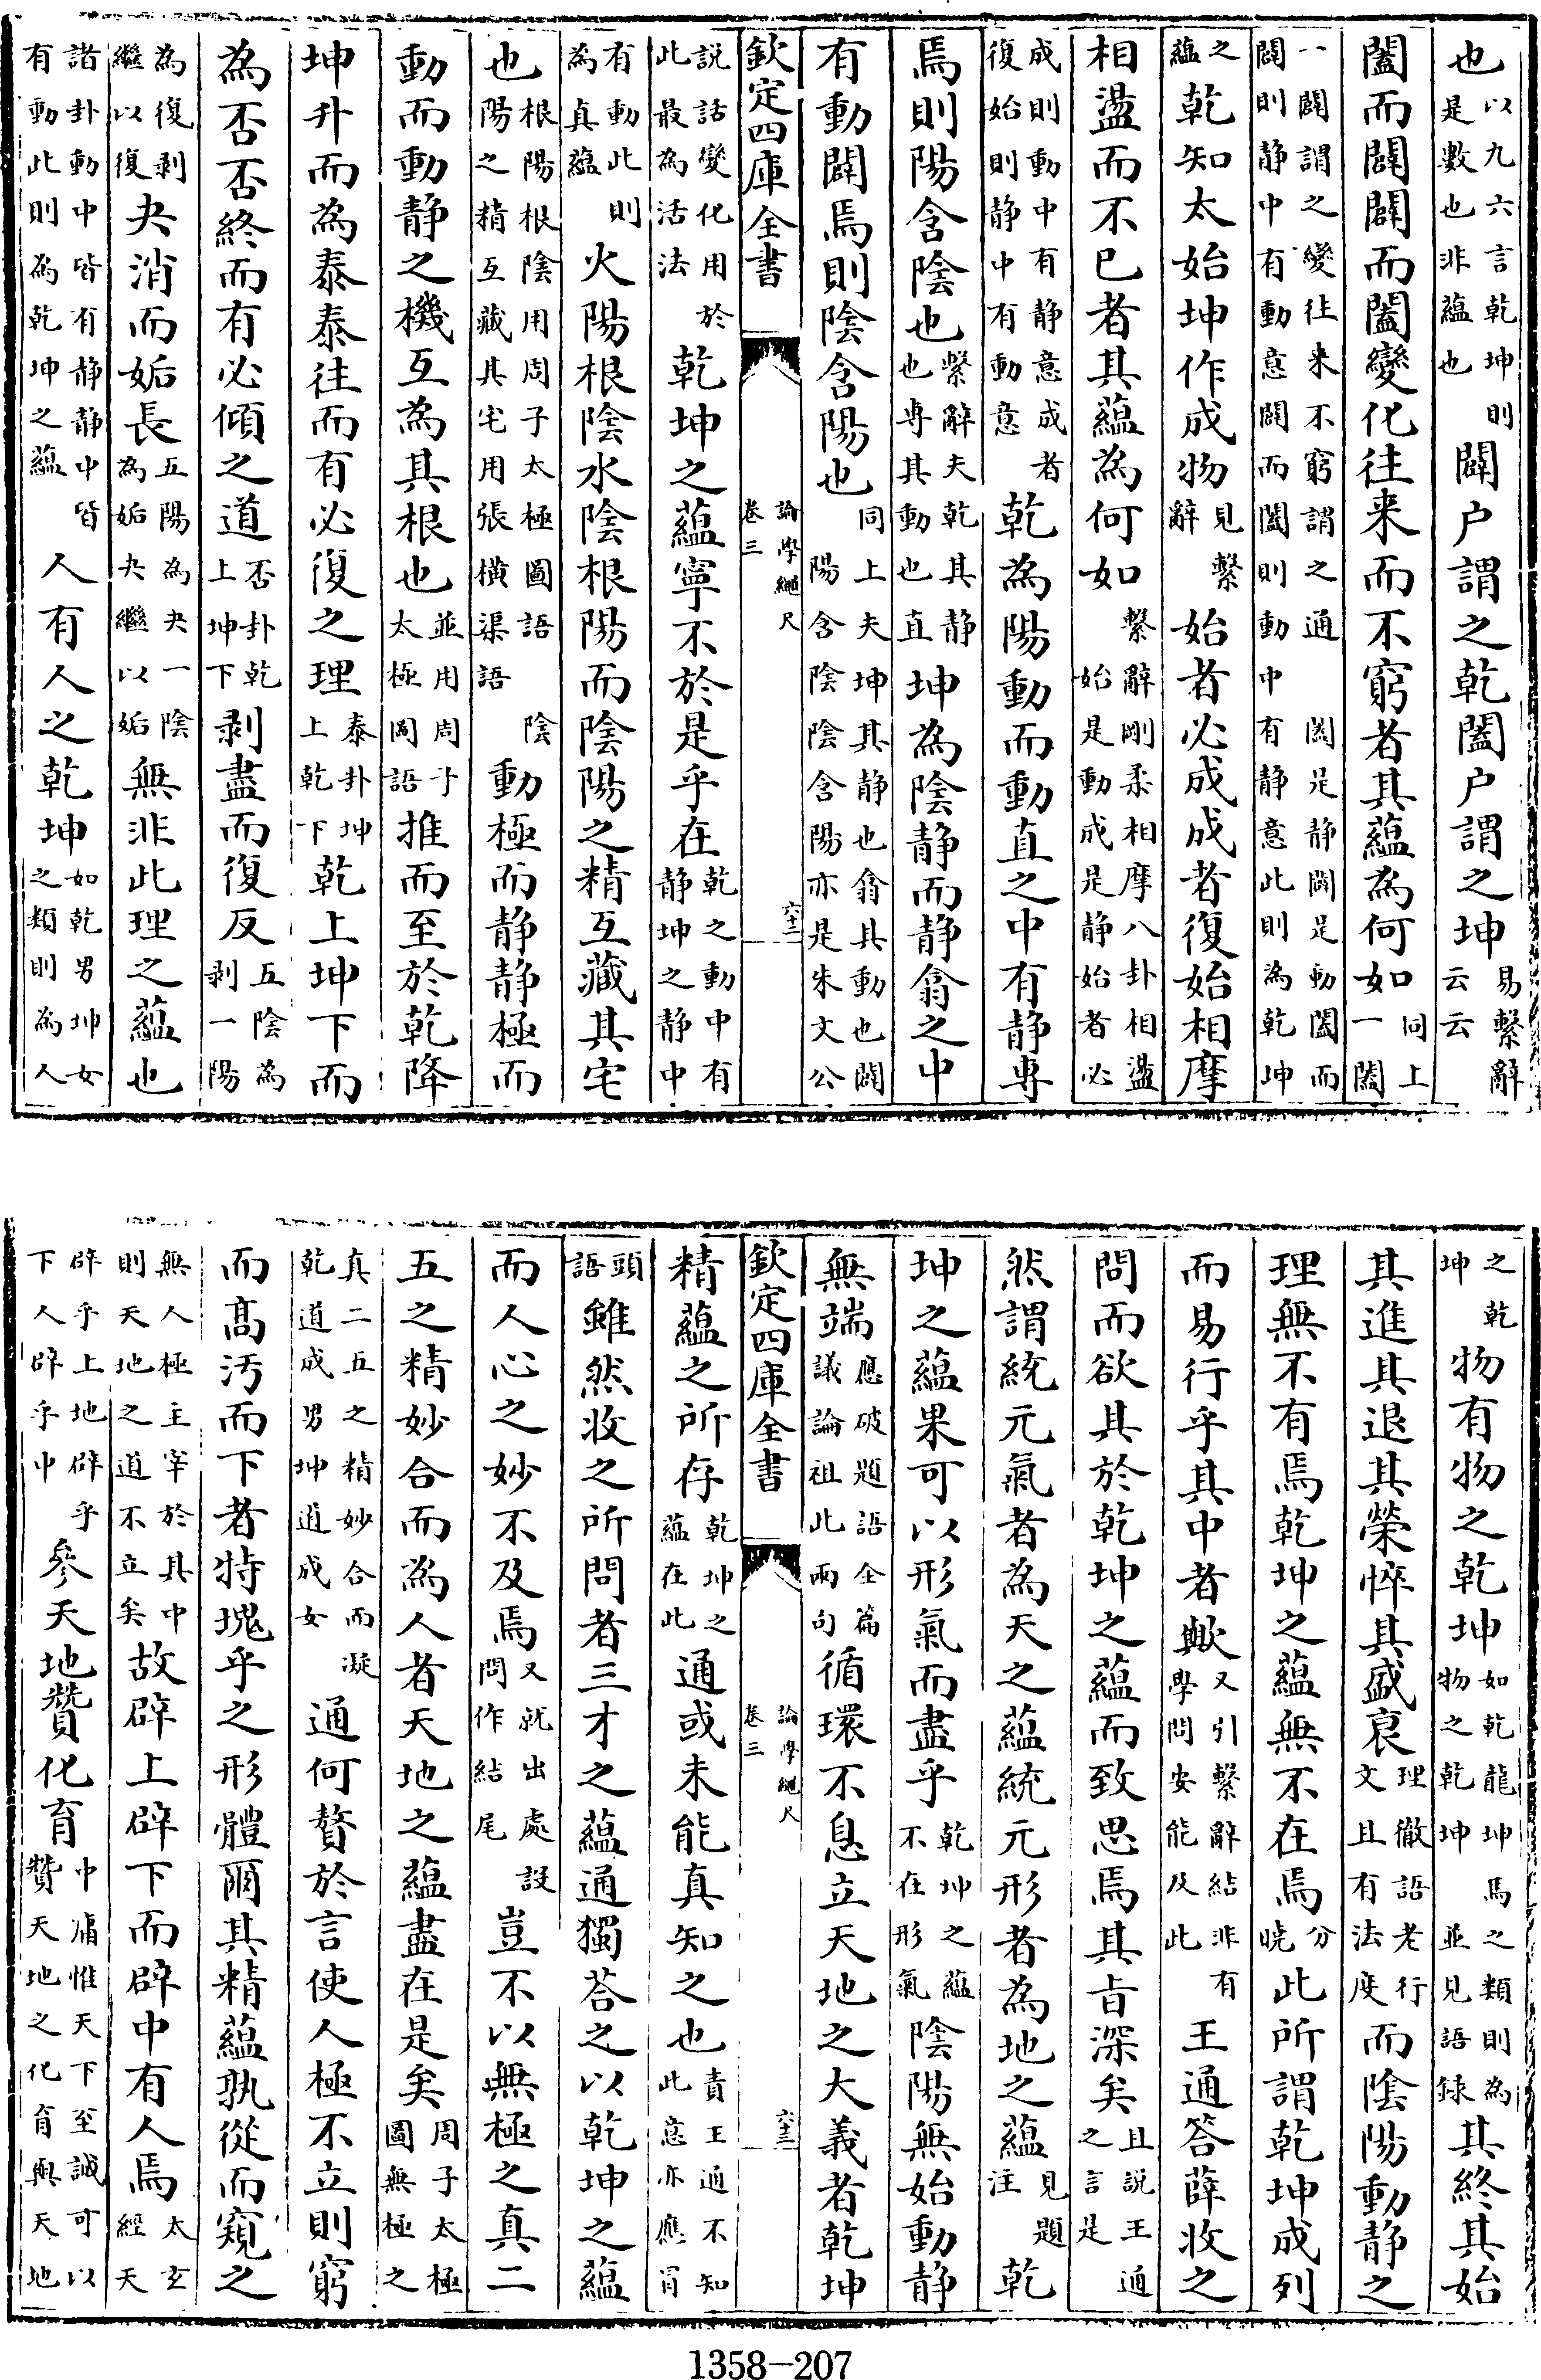 也以九六言乾坤則是數也非蘊也闢户謂之乾闔户謂之坤易繫辭云云
闔而闢闢而闔變化往来而不窮者其蘊為何如同上一闔
一闢謂之變往来不窮謂之通闔是静闢是動闔而闢則静中有動意闢而闔則動中有静意此則為乾坤
之蘊乾知太始坤作成物見繫辭始者必成成者復始相摩
相盪而不已者其蘊為何如繫辭剛柔相摩八卦相盪始是動成是静始者必
成則動中有静意成者復始則静中有動意乾為陽動而動直之中有静専
焉則陽含陰也繫辭夫乾其静也専其動也直坤為陰静而静翕之中
有動闢焉則陰含陽也同上夫坤其静也翕其動也闢陽含陰陰含陽亦是朱文公
欽定四庫全書
論學繩尺
卷三
六十二
説話變化用於此最為活法乾坤之蘊寧不於是乎在乾之動中有静坤之静中
有動此則為真蘊火陽根陰水陰根陽而陰陽之精互藏其宅
也根陽根陰用周子太極圖語陰陽之精互藏其宅用張橫渠語動極而静静極而
動而動静之機互為其根也並用周子太極圖語推而至於乾降
坤升而為泰泰往而有必復之理泰卦坤上乾下乾上坤下而
為否否終而有必傾之道否卦乾上坤下剥盡而復反五陰為剥一陽
為復剥繼以復夬消而姤長五陽為夬一陰為姤夬繼以姤無非此理之蘊也
諸卦動中皆有静静中皆有動此則為乾坤之蘊人有人之乾坤如乾男坤女之類則為人
之乾坤物有物之乾坤如乾龍坤馬之類則為物之乾坤並見語録其終其始
其進其退其榮悴其盛衰理徹語老行文且有法度而陰陽動静之
理無不有焉乾坤之蘊無不在焉分曉此所謂乾坤成列
而易行乎其中者歟又引繫辭結非有學問安能及此王通答薛收之
問而欲其於乾坤之蘊而致思焉其旨深矣且説王通之言是
然謂統元氣者為天之蘊統元形者為地之蘊見題注乾
坤之蘊果可以形氣而盡乎乾坤之蘊不在形氣陰陽無始動静
無端應破題語全篇議論祖此兩句循環不息立天地之大義者乾坤
欽定四庫全書
論學繩尺
卷三
六十三
精蘊之所存乾坤之蘊在此通或未能真知之也責王通不知此意亦應冒
頭語雖然收之所問者三才之蘊通獨荅之以乾坤之蘊
而人心之妙不及焉又就出處設問作結尾豈不以無極之真二
五之精妙合而為人者天地之蘊盡在是矣周子太極圖無極之
真二五之精妙合而凝乾道成男坤道成女通何贅於言使人極不立則窮
而髙汚而下者特塊乎之形體爾其精蘊孰從而窺之
無人極主宰於其中則天地之道不立矣故辟上辟下而辟中有人焉太玄經天
辟乎上地辟乎下人辟乎中參天地贊化育中庸惟天下至誠可以贊天地之化育與天地
1358-207